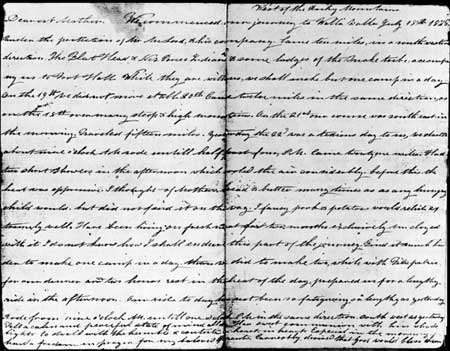 West of the Rocky Mountains
Dearest Mother We commenced our journey to Walla Walla July 18th 1836
under the protection of Mr McLeod, & his company Came ten miles, in a south west
direction. The Flat Head & Nez Perce Indians & some lodges of the Snake tribe, accompa
ny us to Fort Hall While they are with us, we shall make but one camp in a day
On the 19th we did not move at all. 20th Came twelve miles in the same direction, as
on the 18th over many steep & high mountains On the 21st our course was south east in
the morning Traveled fifteen miles. the 22d was a tedious day to us, we started
about nine o'clock & rode until half past four, P.M. Came twenty one miles. Had
two short showers in the afternoon which cooled the air considerably, before this the
heat was oppressive. I thought of Mother's bread & butter many times as any hungry
child would, but did not find it on the way I fancy pork & potatoes would relish ex
tremely well Have been living on fresh meat for two months exclusively am cloyed
with it I do not know how I shall endure this part of the journey
to make one camp in a day there we did to make two, while with Fitzpatric
for our dinner and two hours rest in the heat of the day, prepared us for a lengthy
ride in the afternoon. Our ride to day has not been so fatiguing a lengthy as yesterday
rode from nine o'clock A.M. until one P.M. in the same direction south east
Felt a calm and peaceful state of mind all day
had a freedom in prayer for my beloved
earnestly desired that God would bless them